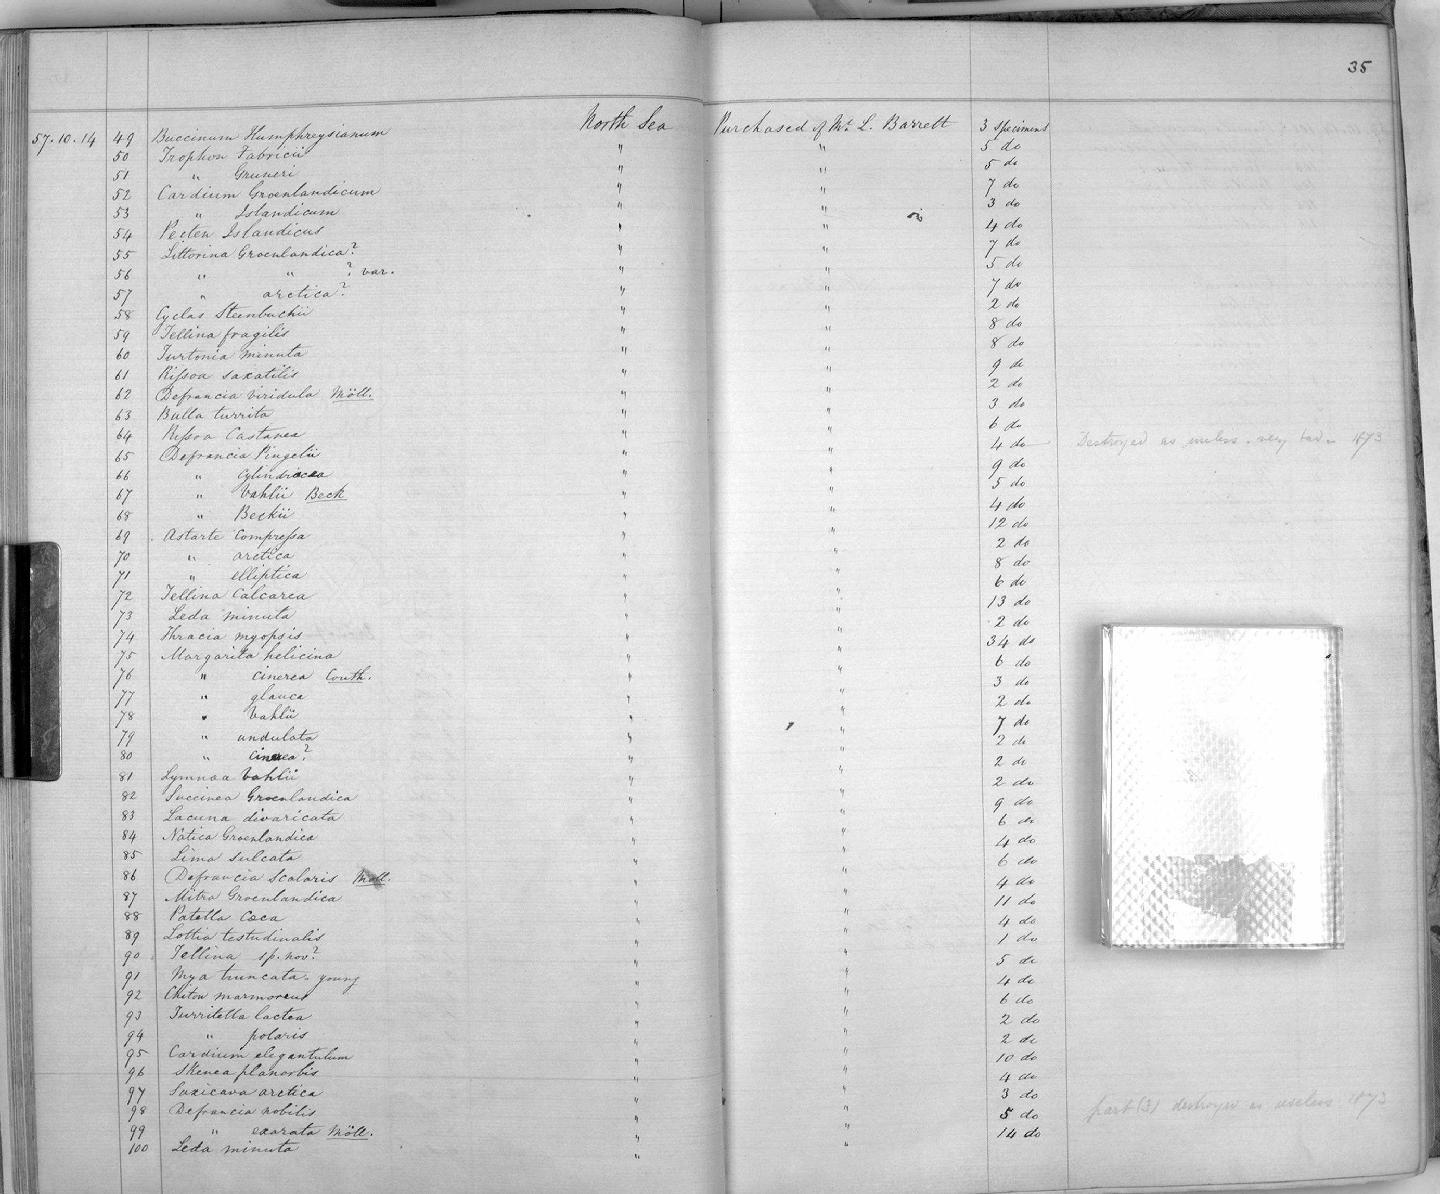 35
57.10.14 49 Buccinum Humphreysianum North Sea Purchased of Mr. L. Barrett 3 specimens
50 Trophon Fabricii " " 5 do
51 " Gruneri " " 5 do
52 Cardium Groenlandicum " " 7 do
53 " Islandicum " " 3 do
54 Pecten Islandicus " " 4 do
55 Littorina Groenlandica? " " 7 do
56 " " ? var. " " 5 do
57 " arctica? " " 7 do
58 Cyclas Steenbuchii " " 2 do
59 Tellina fragilis " " 8 do
60 Turtonia minuta " " 8 do
61 Rissoa saxatilis " " 9 do
62 Defrancia viridula Möll. " " 2 do
63 Bulla turrita " " 3 do
64 Rissoa Castanea " " 6 do
65 Defrancia Pingelii " " 4 do Destroyed as useless. very bad. 1873
66 " Cylindracea " " 9 do
67 " Vahlii Beck " " 5 do
68 " Beckii " " 4 do
69 Astarte Compressa " " 12 do
70 " arctica " " 2 do
71 " elliptica " " 8 do
72 Tellina Calcarea " " 6 do
73 Leda minuta " " 13 do
74 Thracia myopsis " " 2 do
75 Margarita helicina " " 34 do
76 " cinerea Couth. " " 6 do
77 " glauca " " 3 do
78 " Vahlii " " 2 do
79 " undulata " " 7 do
80 " cinerea? " " 2 do
81 Lymnaa Vahlii " " 2 do
82 Succinea Groenlandica " " 2 do
83 Lacuna divaricata " " 9 do
84 Natica Groenlandica " " 6 do
85 Lima sulcata " " 4 do
86 Defrancia Scalaris Möll. " " 6 do
87 Mitra Groenlandica " " 4 do
88 Patella Cæca " " 11 do
89 Lottia testudinalis " " 4 do
90 Tellina sp. nov? " " 1 do
91 Mya truncata. young " " 5 do
92 Chiton marmoreus " " 4 do
93 Turritella lactea " " 6 do
94 " polaris " " 2 do
95 Cardium elegantulum " " 2 do
96 Skenea planorbis " " 10 do
97 Saxicava arctica " " 4 do
98 Defrancia nobilis " " 3 do
99 " exarata Möll. " " 5 do part (3) destroyed as useless. 1873
100 Leda minuta " " 14 do